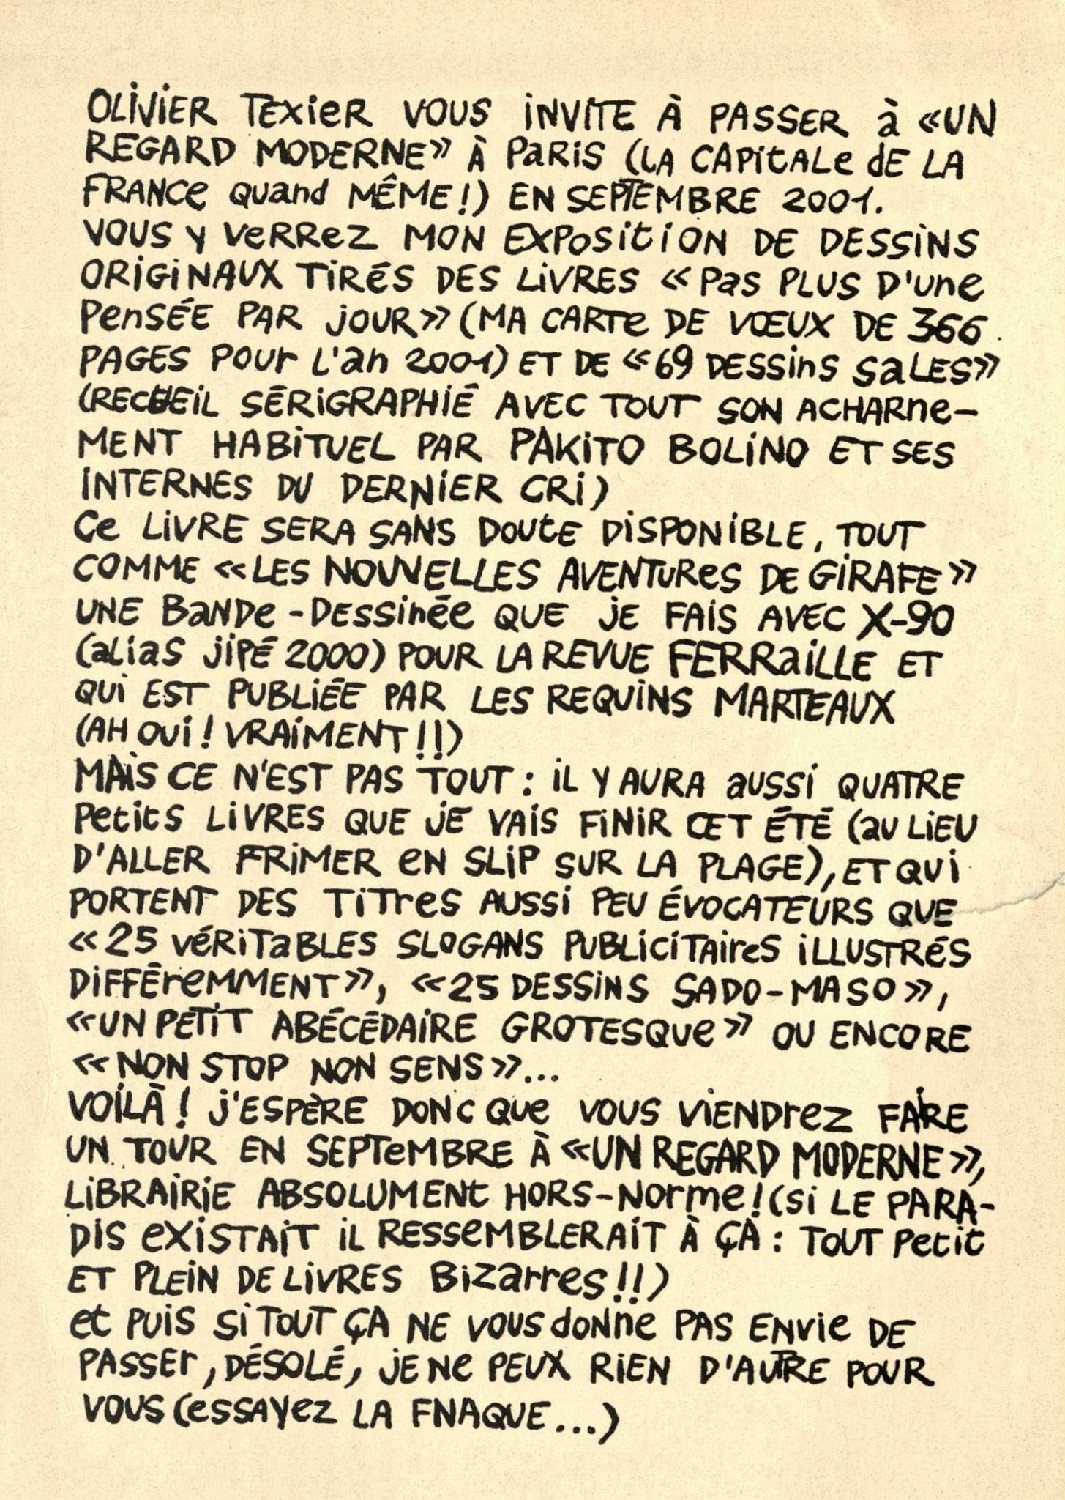 OLIVIER TEXIER VOUS INVITE À PASSER à «UN
REGARD MODERNE» À PARIS (LA CAPITALE dE LA
FRANCE quand MÊME!) EN SEPTEMBRE 2001.
VOUS Y VERREZ MON EXPOSITION DE DESSINS
ORIGINAUX TIRÉS DES LIVRES «PAS PLUS D'une
PENSÉE PAR JOUR» (MA CARTE DE VŒUX DE 366
PAGES POUR L'an 2001) ET DE «69 DESSINS SALES»
(RECUEIL SÉRIGRAPHIÉ AVEC TOUT SON ACHARNE-
MENT HABITUEL PAR PAKITO BOLINO ET SES
INTERNES DU DERNIER CRI)
Ce LIVRE SERA SANS DOUTE DISPONIBLE, TOUT
COMME «LES NOUVELLES AVENTURES DE GIRAFE»
UNE BANDE-DESSINÉE QUE JE FAIS AVEC X-90
(ALIAS JIPÉ 2000) POUR LA REVUE FERRAILLE ET
QUI EST PUBLIÉE PAR LES REQUINS MARTEAUX
(AH OUI! VRAIMENT!!)
MAIS CE N'EST PAS TOUT: IL Y AURA AUSSI QUATRE
PETITS LIVRES QUE JE VAIS FINIR CET ÉTÉ (AU LIEU
D'ALLER FRIMER EN SLIP SUR LA PLAGE), ET QUI
PORTENT DES TITRES AUSSI PEU ÉVOCATEURS QUE
«25 VÉRITABLES SLOGANS PUBLICITAIRES ILLUSTRÉS
DIFFÉREMMENT», «25 DESSINS SADO-MASO»,
«UN PETIT ABÉCÉDAIRE GROTESQUE» OU ENCORE
«NON STOP NON SENS»...
VOILÀ! J'ESPÈRE DONC QUE VOUS VIENDREZ FAIRE
UN TOUR EN SEPTEMBRE À «UN REGARD MODERNE»,
LIBRAIRIE ABSOLUMENT HORS-NORME! (SI LE PARA-
DIS EXISTAIT IL RESSEMBLERAIT À ÇA: TOUT PETIT
ET PLEIN DE LIVRES BIZARRES!!)
et PUIS SI TOUT ÇA NE VOUS dONNE PAS ENVIE DE
PASSER, DÉSOLÉ, JE NE PEUX RIEN D'AUTRE POUR
VOUS (ESSAYEZ LA FNAQUE...)